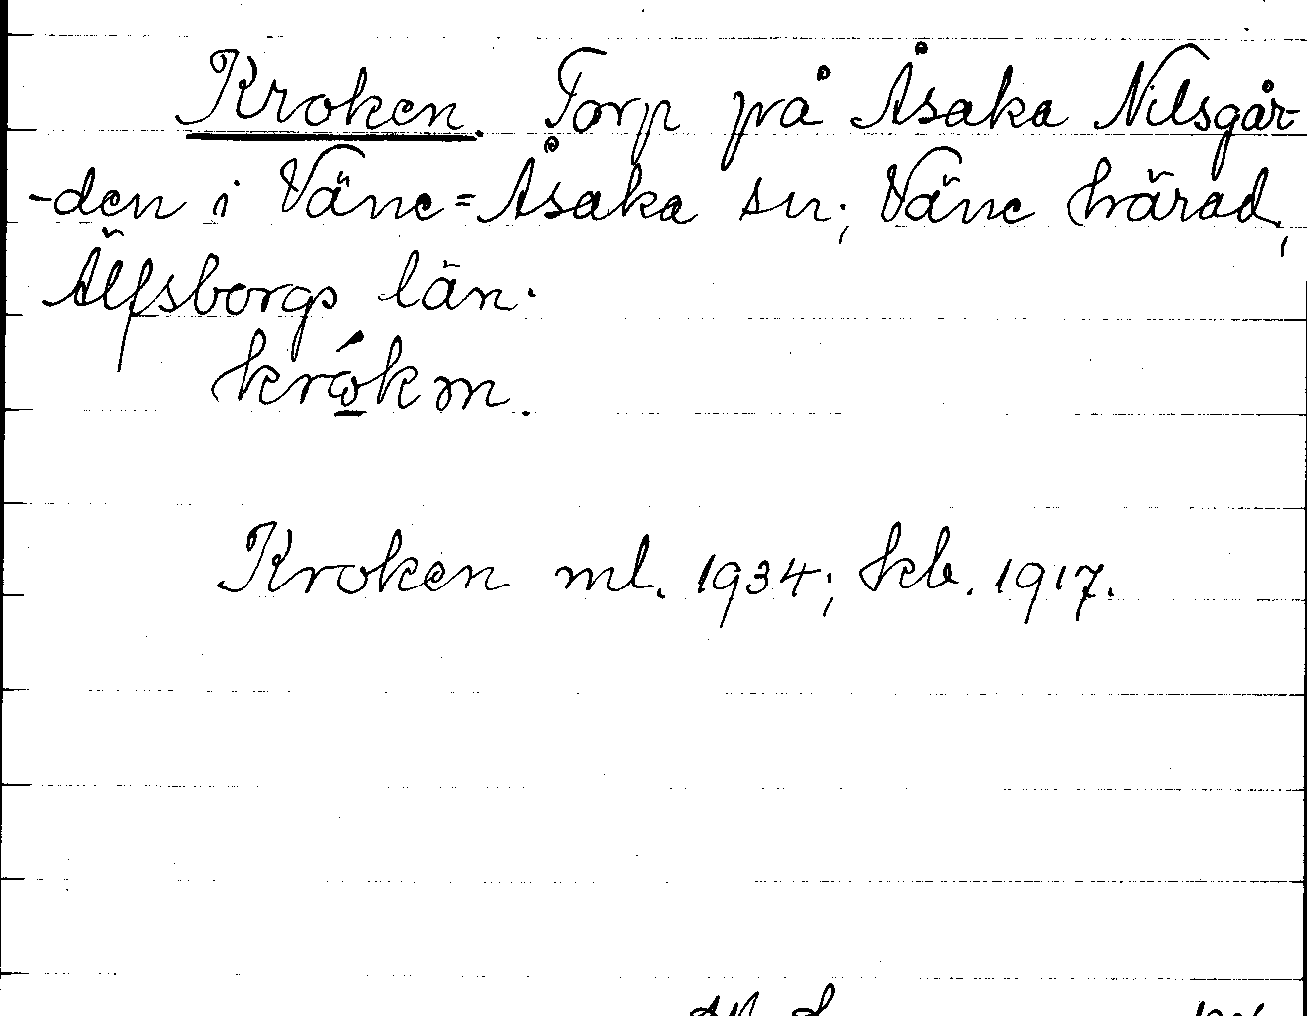 Kroken. Torp på Åsaka Nilsgår-
-den i Väne=Åsaka sn; Väne härad,
Älfsborgs län.
Kroken ml. 1934; kb. 1917.